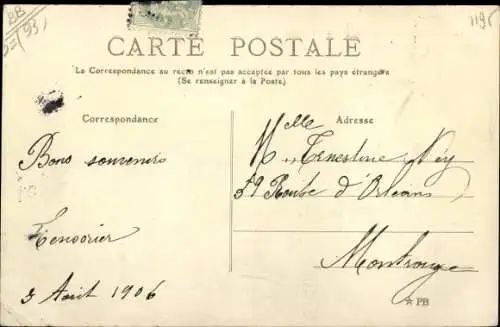 BB
93
1195
CARTE POSTALE
La Correspondance au recto n'est pas acceptée par tous les pays étrangers
(Se renseigner à la Poste.)
Correspondance
Adresse
Bons souvenirs
Tensorier
3 Août 1906
Melle Ernestine Néy
59 Route d'Orléans
Montrouge
PB